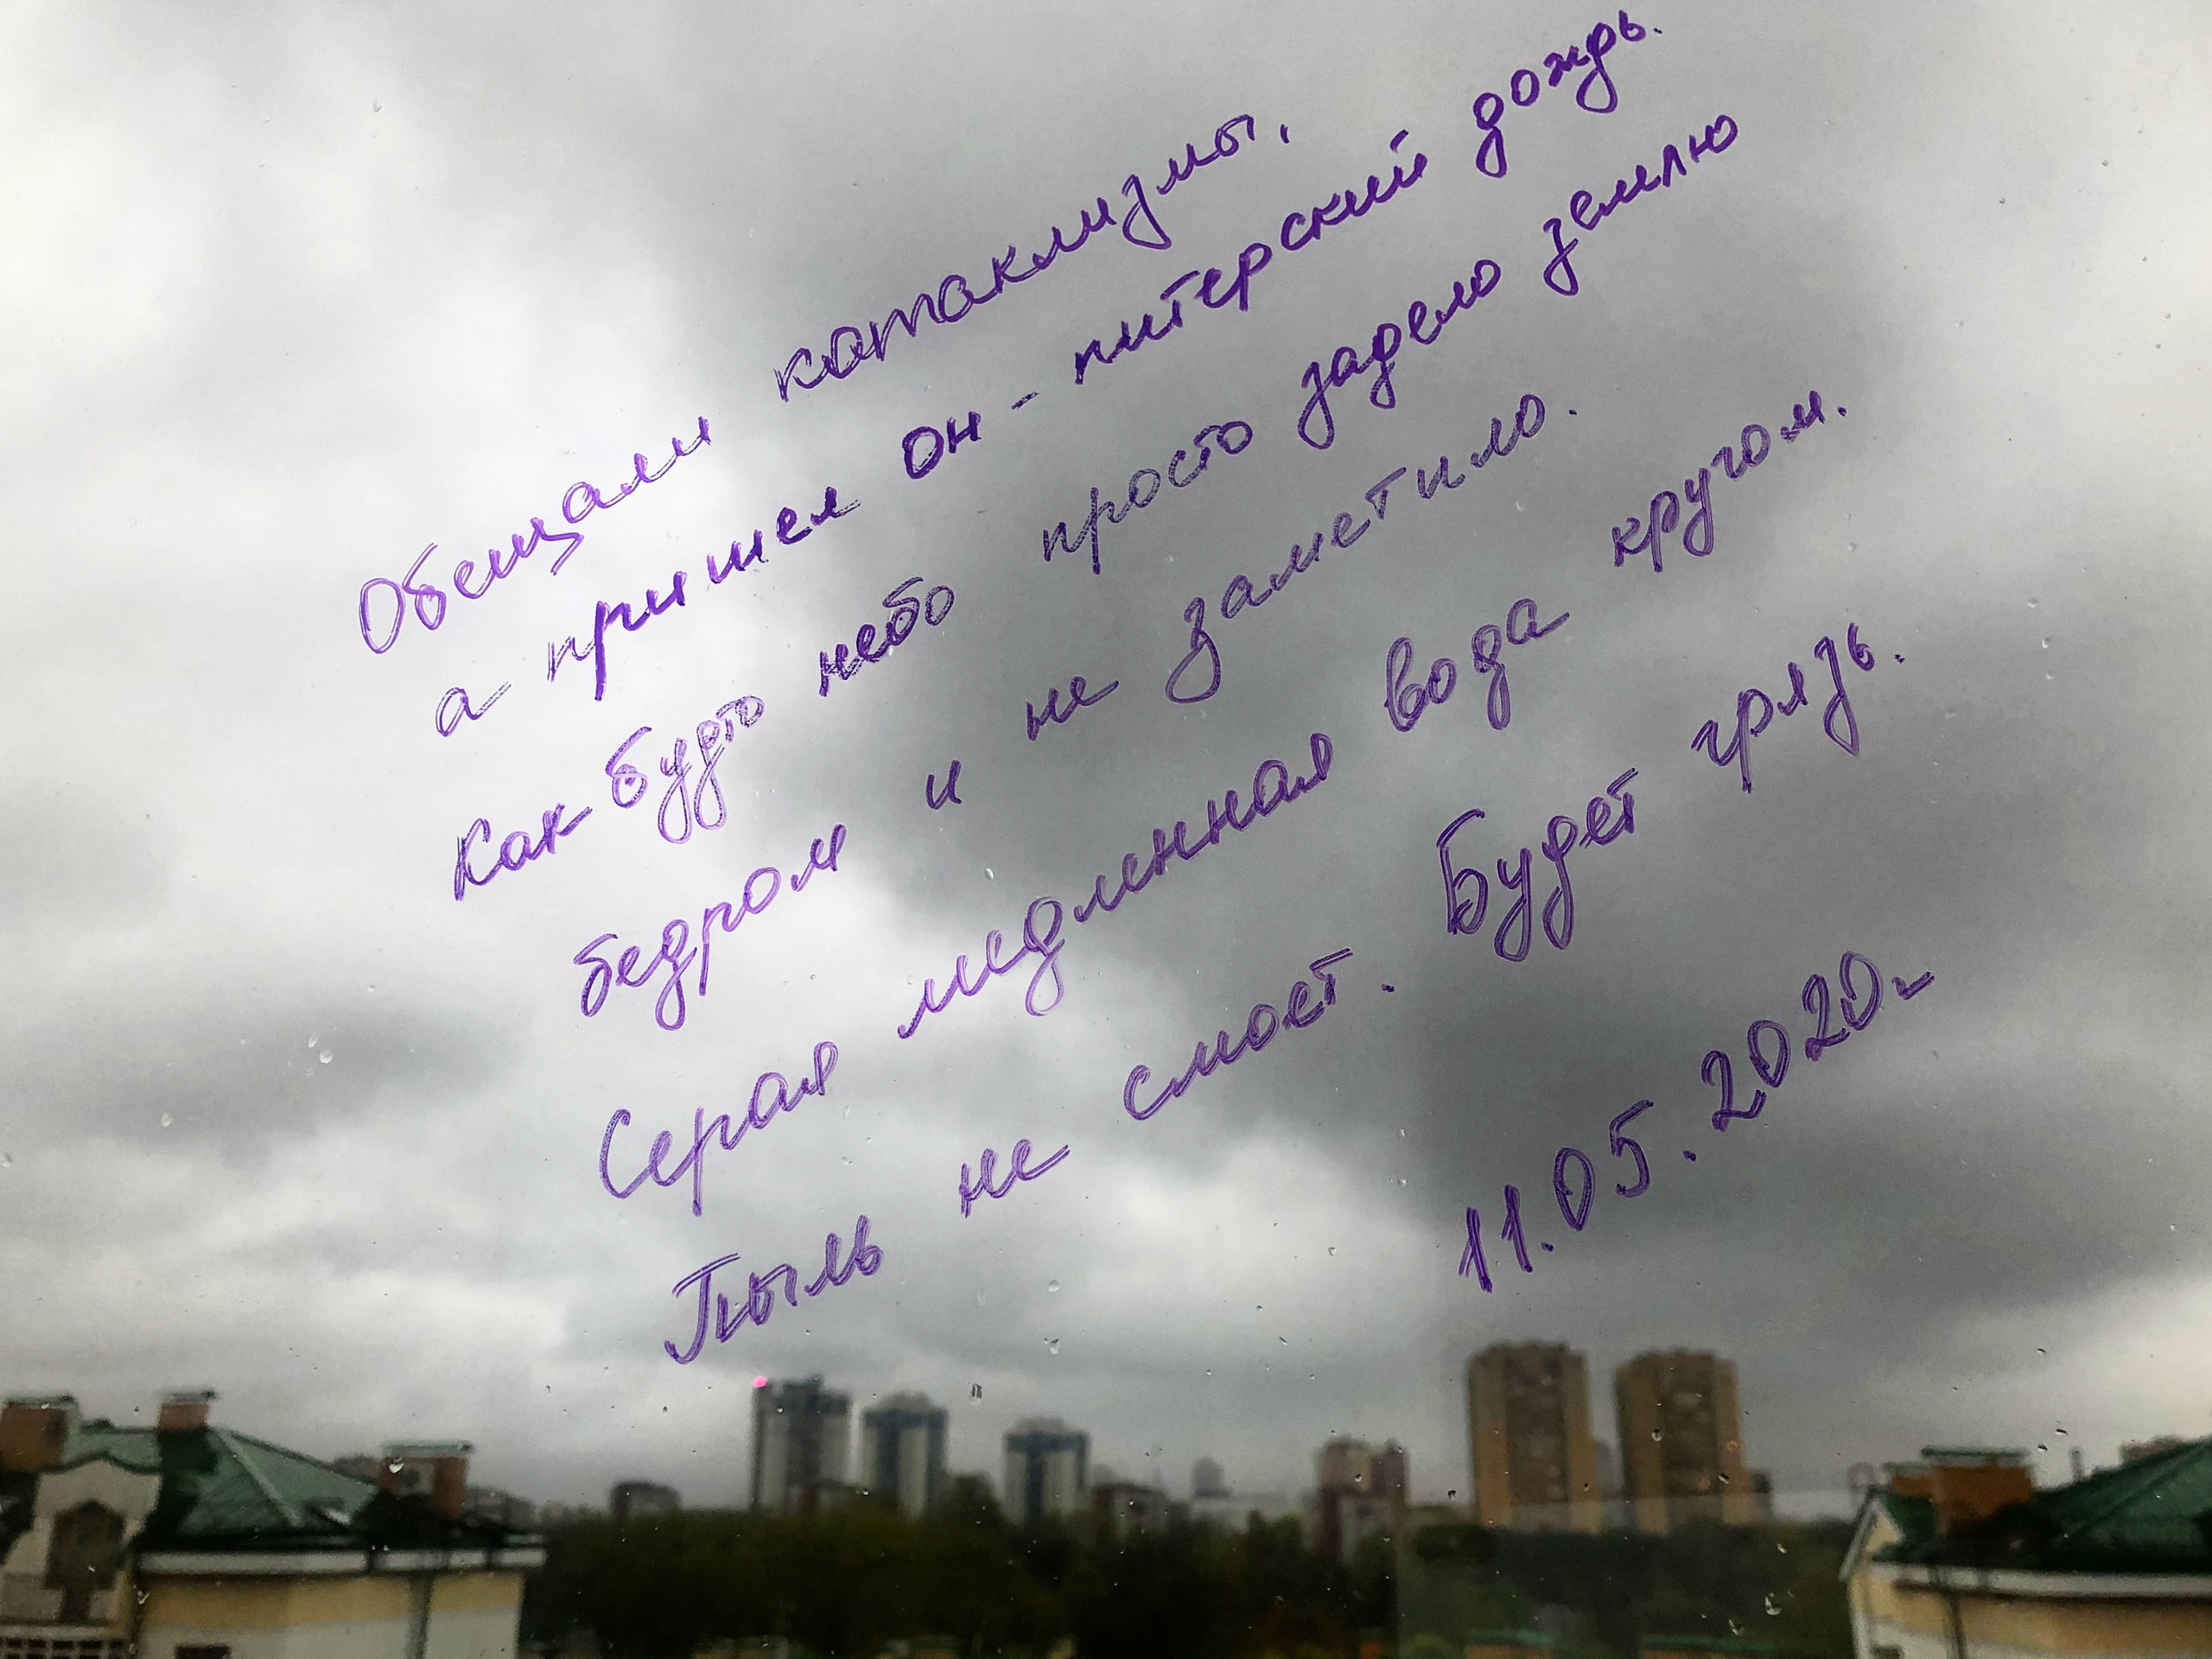 Обещали катаклизмы,
а пришел он - питерский дождь.
Как будто небо просто задело землю
бедром и не заметило.
Серая медлинная вода кругом.
Пыль не смоет. Будет грязь.
11.05.2020г